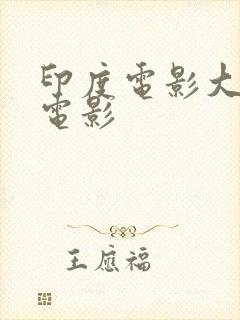 印度電影大
電影
王應福